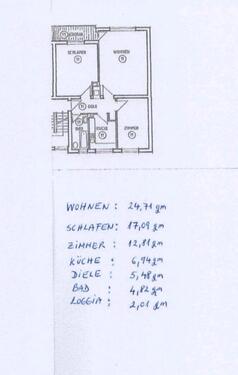 SCHLAFEN
WOHNEN
DIELE
BAD
KÜCHE
ZIMMER
WOHNEN : 24,71 qm
SCHLAFEN: 17,09 qm
ZIMMER : 12,81 qm
KÜCHE : 6,94 qm
DIELE : 5,48 qm
BAD : 4,82 qm
LOGGIA : 2,01 qm